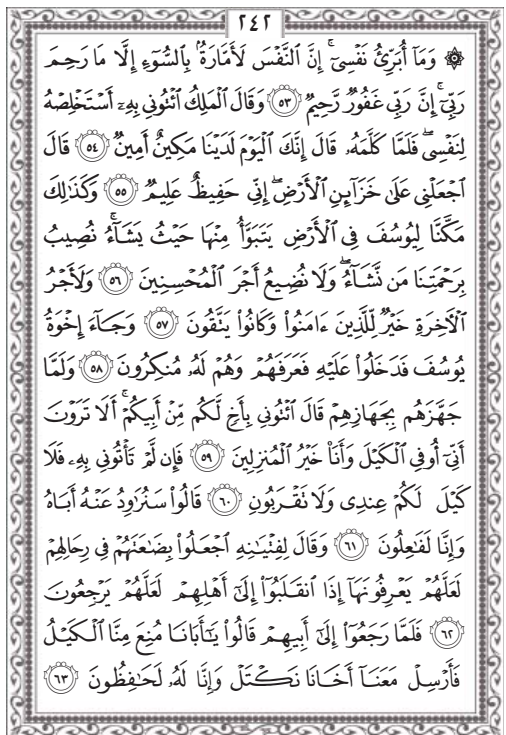 ٢٤٢
۞ وَمَآ أُبَرِّئُ نَفْسِىٓ ۚ إِنَّ ٱلنَّفْسَ لَأَمَّارَةٌۢ بِٱلسُّوٓءِ إِلَّا مَا رَحِمَ
رَبِّىٓ ۚ إِنَّ رَبِّى غَفُورٌ رَّحِيمٌ ٥٣ وَقَالَ ٱلْمَلِكُ ٱئْتُونِى بِهِۦٓ أَسْتَخْلِصْهُ
لِنَفْسِى ۖ فَلَمَّا كَلَّمَهُۥ قَالَ إِنَّكَ ٱلْيَوْمَ لَدَيْنَا مَكِينٌ أَمِينٌ ٥٤ قَالَ
ٱجْعَلْنِى عَلَىٰ خَزَآئِنِ ٱلْأَرْضِ ۖ إِنِّى حَفِيظٌ عَلِيمٌ ٥٥ وَكَذَٰلِكَ
مَكَّنَّا لِيُوسُفَ فِى ٱلْأَرْضِ يَتَبَوَّأُ مِنْهَا حَيْثُ يَشَآءُ ۚ نُصِيبُ
بِرَحْمَتِنَا مَن نَّشَآءُ ۖ وَلَا نُضِيعُ أَجْرَ ٱلْمُحْسِنِينَ ٥٦ وَلَأَجْرُ
ٱلْـَٔاخِرَةِ خَيْرٌ لِّلَّذِينَ ءَامَنُوا۟ وَكَانُوا۟ يَتَّقُونَ ٥٧ وَجَآءَ إِخْوَةُ
يُوسُفَ فَدَخَلُوا۟ عَلَيْهِ فَعَرَفَهُمْ وَهُمْ لَهُۥ مُنكِرُونَ ٥٨ وَلَمَّا
جَهَّزَهُم بِجَهَازِهِمْ قَالَ ٱئْتُونِى بِأَخٍ لَّكُم مِّنْ أَبِيكُمْ ۚ أَلَا تَرَوْنَ
أَنِّىٓ أُوفِى ٱلْكَيْلَ وَأَنَا۠ خَيْرُ ٱلْمُنزِلِينَ ٥٩ فَإِن لَّمْ تَأْتُونِى بِهِۦ فَلَا
كَيْلَ لَكُمْ عِندِى وَلَا تَقْرَبُونِ ٦٠ قَالُوا۟ سَنُرَٰوِدُ عَنْهُ أَبَاهُ
وَإِنَّا لَفَٰعِلُونَ ٦١ وَقَالَ لِفِتْيَٰنِهِ ٱجْعَلُوا۟ بِضَٰعَتَهُمْ فِى رِحَالِهِمْ
لَعَلَّهُمْ يَعْرِفُونَهَآ إِذَا ٱنقَلَبُوٓا۟ إِلَىٰٓ أَهْلِهِمْ لَعَلَّهُمْ يَرْجِعُونَ
٦٢ فَلَمَّا رَجَعُوٓا۟ إِلَىٰٓ أَبِيهِمْ قَالُوا۟ يَٰٓأَبَانَا مُنِعَ مِنَّا ٱلْكَيْلُ
فَأَرْسِلْ مَعَنَآ أَخَانَا نَكْتَلْ وَإِنَّا لَهُۥ لَحَٰفِظُونَ ٦٣